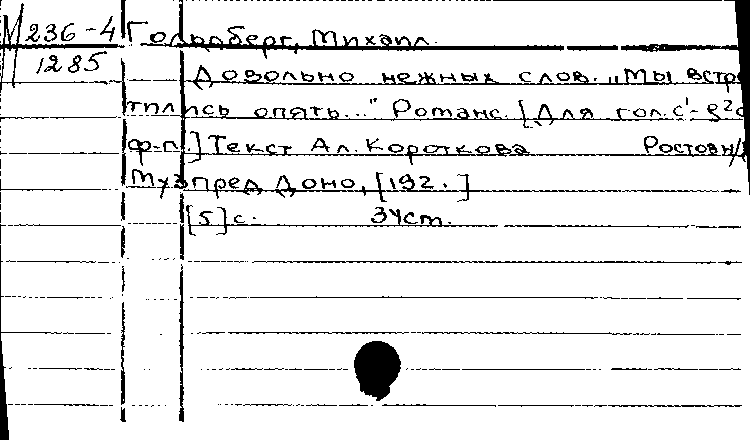 М 236-4 Гольдберг, Михаил.
1285
Довольно нежных слов. „Мы встре
тились опять..." Романс. [Для гол. с
ф-п.] Текст Ал. Короткова Ростов н/
Музпред Доно, [192.]
[5] с. 34 см.